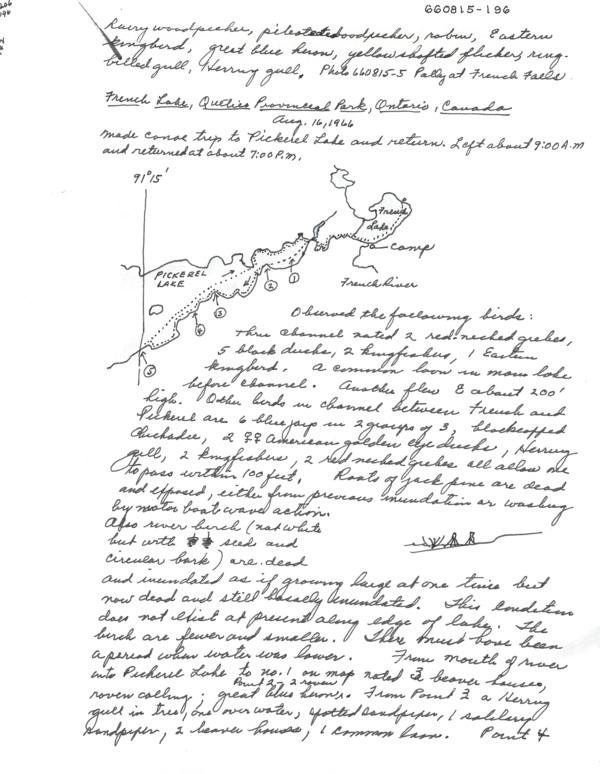 660815-196
Hairy woodpecker, pileated woodpecker, robin, Eastern
kingbird, great blue heron, yellow shafted flicker, ring-
billed gull, Herring gull. Photo 660815-5 Polly at French Falls
French Lake, Quetico Provincial Park, Ontario, Canada
Aug. 16, 1966
Made canoe trip to Pickerel Lake and return. Left about 9:00 A.M
and returned at about 7:00 P.M.
91°15'
French
Lake
camp
PICKEREL
LAKE
French River
1
2
3
4
5
Observed the following birds:
Thru channel noted 2 red-necked grebes,
5 black ducks, 2 kingfishers, 1 Eastern
kingbird. A common loon in main lake
before channel. Another flew E about 200'
high. Other birds in channel between French and
Pickerel are 6 blue jays in 2 groups of 3, blackcapped
Chickadee, 2 ♀♀ American golden eye ducks, Herring
gull, 2 kingfishers, 2 red necked grebes all allow me
to pass within 100 feet. Roots of jack pine are dead
and exposed, either from previous inundation or washing
by motor boat wave action.
Also river birch (not white
but with seed and
circular bark) are dead
and inundated as if growing large at one time but
now dead and still basally inundated. This condition
does not exist at present along edge of lake. The
birch are fewer and smaller. There must have been
a period when water was lower. From mouth of river
into Pickerel Lake to no. 1 on map noted 2 beaver houses,
Point 2 - 2 raven
raven calling, great blue heron. From Point 2 a Herring
gull in tree, one over water, spotted sandpiper, 1 solitary
sandpiper, 2 beaver houses, 1 common loon. Point 4